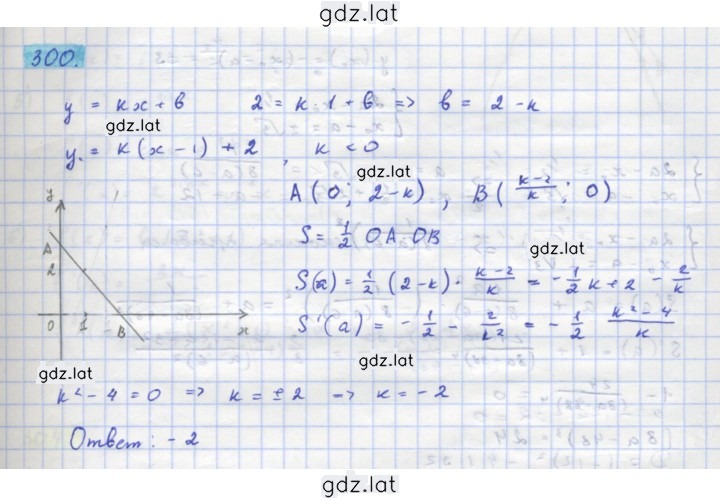 gdz.lat
300.
y = kx + b   2 = k·1 + b => b = 2 - k
gdz.lat
y = k(x - 1) + 2, k < 0
gdz.lat
A(0; 2-k), B(\frac{k-2}{k}; 0)
S = \frac{1}{2} OA·OB
gdz.lat
S(a) = \frac{1}{2} (2-k)·\frac{k-2}{k} = -\frac{1}{2}k + 2 - \frac{2}{k}
S'(a) = -\frac{1}{2} - \frac{2}{k^2} = -\frac{1}{2} \frac{k^2-4}{k}
y
A
2
0 1 B x
gdz.lat
gdz.lat
k² - 4 = 0 => k = ±2 => k = -2
gdz.lat
Ответ: -2
gdz.lat